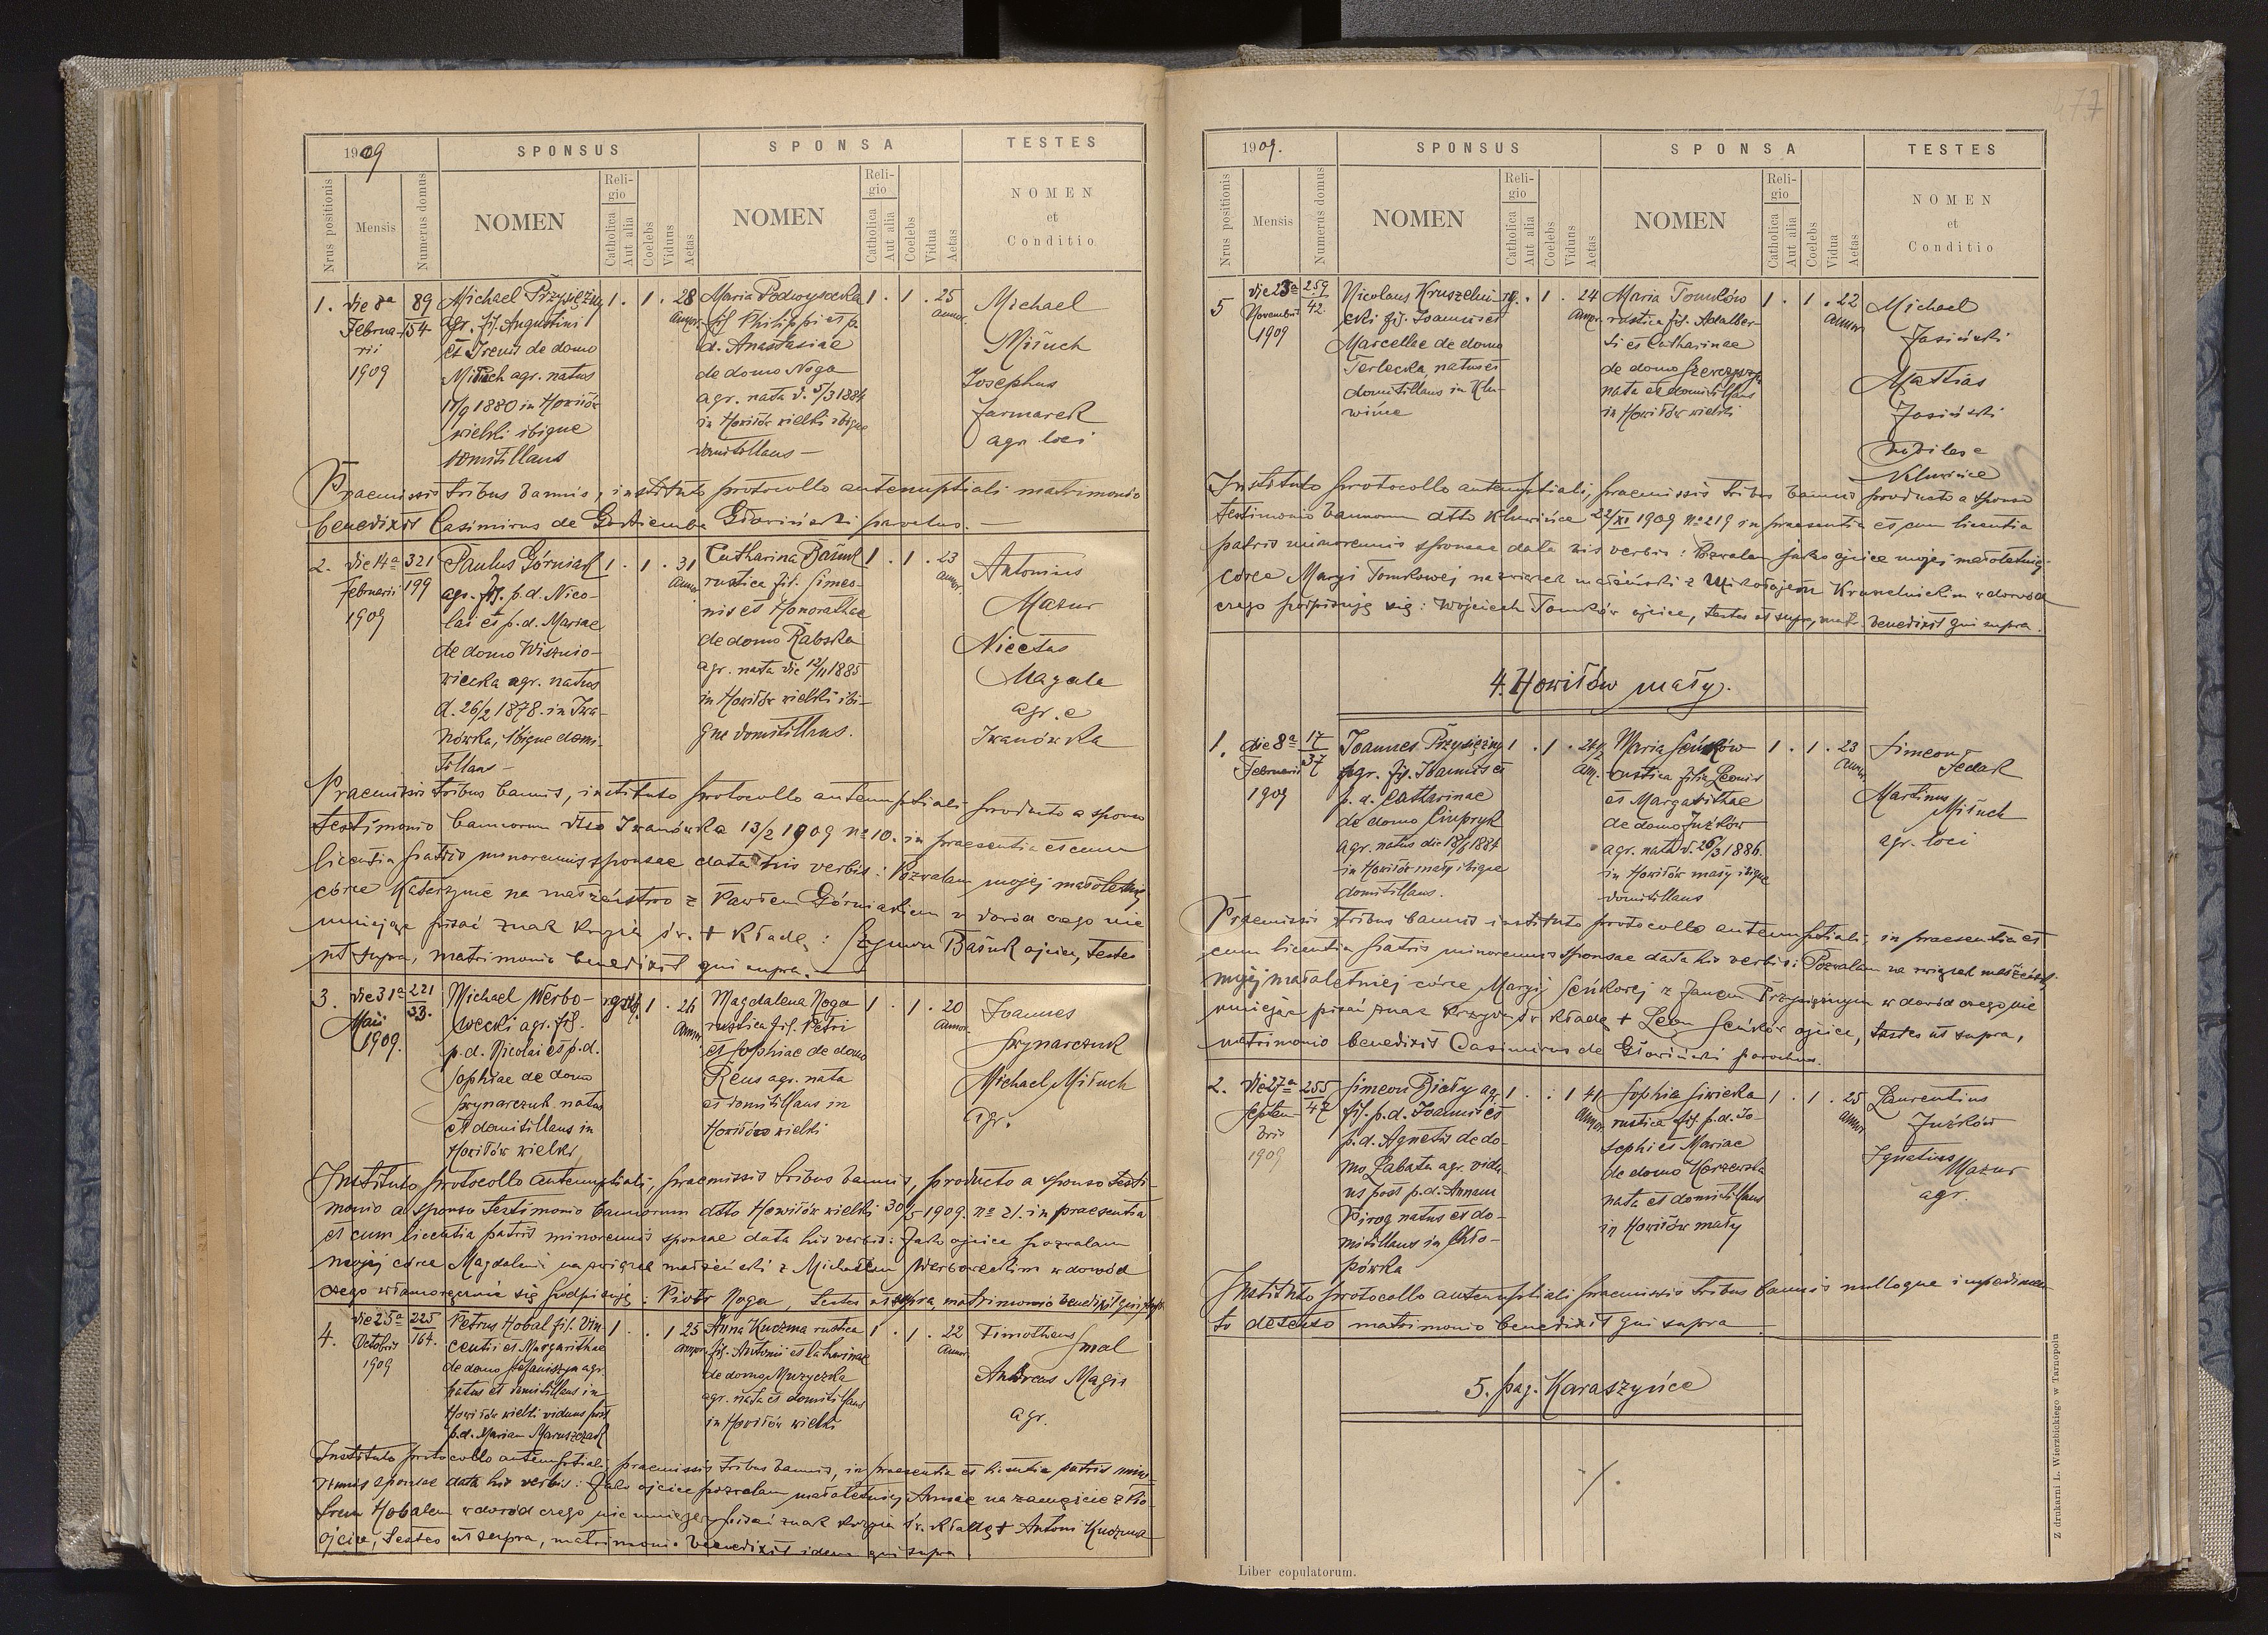 477
1909
SPONSUS
SPONSA
TESTES
Nrus positionis
Mensis
Numerus domus
NOMEN
Religio
Catholica
Aut alia
Coelebs
Viduus
Aetas
NOMEN
Religio
Catholica
Aut alia
Coelebs
Vidua
Aetas
NOMEN
et
Conditio
1. die 8ª Februarii 1909
89
154
Michael Przysiężny
agr. fil. Augustini
et Irenis de domo
Misuch agr. natus
1880 in Howiłów
wielki ibique
domitillans
1 . 1 . 28 annor.
Maria Podwysocka
fil. Philippi et p.
d. Anastasiae
de domo Noga
agr. nata d. 5/3 1884
in Howiłów wielki ibique
domitillans —
1 . 1 . 25 annor.
Michael
Misuch
Josephus
Jarmarek
agr. loci
Praemissis tribus bannis, instituto protocollo antenuptiali matrimonio
benedixit Casimirus de Głowiński parochus. —
2. die 14ª Februarii 1909
321
199
Paulus Górniak
agr. fil. p.d. Nico-
lai et p.d. Mariae
de domo Wiśnio-
wiecka agr. natus
d. 26/2 1878 in Iwa-
nówka, ibique domi-
tillans —
1 . 1 . 31 annor.
Catharina Basiuk
rustica fil. Simeo-
nis et Honorathae
de domo Rabska
agr. nata die 12/11 1885
in Howiłów wielki ibi-
que domitillans.
1 . 1 . 23 annor.
Antonius
Mazur
Nicetas
Magala
agr. e
Iwanówka
Praemissis tribus bannis, instituto protocollo antenuptiali producto a sponso
testimonio bannorum dtto Iwanówka 13/2 1909 nº 10. in praesentia et cum
licentia patris minorennis sponsae data his verbis: Pozwalam mojej małoletniej
córce Katarzynie na małżeństwo z Pawłem Górniakiem w dowód czego nie
umiejąc pisać znak krzyża św. + kładę: Szymon Basiuk ojciec, testes
ut supra, matrimonio benedixit qui supra. —
3. die 31ª Maii 1909.
221
33.
Michael Werbo-
wecki agr. fil.
p.d. Nicolai et p.d.
Sophiae de domo
Skrynarczuk natus
et domitillans in
Howiłów wielki
1 . 26 annor.
Magdalena Noga
rustica fil. Petri
et Sophiae de domo
Reus agr. nata
et domitillans in
Howiłów wielki
1 . 1 . 20 annor.
Joannes
Skrynarczuk
Michael Misuch
agr.
Instituto protocollo antenuptiali, praemissis tribus bannis, producto a sponso testi-
monio a sponso testimonio bannorum dtto Howiłów wielki 30/5 1909. nº 21. in praesentia
et cum licentia patris minorennis sponsae data his verbis: Jako ojciec pozwalam
mojej córce Magdalenie na związek małżeński z Michałem Werboweckim w dowód
czego własnoręcznie się podpisuję: Piotr Noga, testes ut supra, matrimonio benedixit qui supra.
4. die 25ª Octobris 1909
225
164.
Petrus Hobal fil. Vin-
centii et Margarithae
de domo Stefaniszyn agr.
natus et domitillans in
Howiłów wielki viduus post
p.d. Mariam Maruszczak
1 . . 1 25 annor.
Anna Kuczma rustica
fil. Antonii et Catharinae
de domo Muzyczka
agr. nata et domitillans
in Howiłów wielki
1 . 1 . 22 annor.
Timotheus
Smal
Andreas Magis
agr.
Instituto protocollo antenuptiali praemissis tribus bannis, in praesentia et licentia patris mino-
rennis sponsae data his verbis: Jako ojciec pozwalam małoletniej Annie na zamęście z Pio-
trem Hobalem w dowód czego nie umiejąc pisać znak krzyża św. kładę + Antoni Kuczma
ojciec, testes ut supra, matrimonio benedixit idem qui supra.
1909.
SPONSUS
SPONSA
TESTES
Nrus positionis
Mensis
Numerus domus
NOMEN
Religio
Catholica
Aut alia
Coelebs
Viduus
Aetas
NOMEN
Religio
Catholica
Aut alia
Coelebs
Vidua
Aetas
NOMEN
et
Conditio
5 die 23ª Novembris 1909
259
42.
Nicolaus Kruszelni-
cki fil. Joannis et
Marcellae de domo
Terlecka, natus et
domitillans in Klu-
wińce
. 1 . 24 annor.
Maria Tomków
rustica fil. Adalber-
ti et Catharinae
de domo
nata et domitillans
in Howiłów wielki
1 . 1 . 22 annor.
Michael
Jasiński
Mathias
Jasiński
nobiles e
Kluwińce
Instituto protocollo antenuptiali, praemissis tribus bannis producto a sponso
testimonio bannorum dtto Kluwińce 22/XI 1909 nº 219 in praesentia et cum licentia
patris minorennis sponsae data his verbis: Pozwalam jako ojciec mojej małoletniej
córce Maryi Tomkowej na związek małżeński z Mikołajem Kruszelnickim w dowód
czego podpisuję się: Wojciech Tomków ojciec, testes ut supra, matr. benedixit qui supra.
4. Howiłów mały.
1. die 8ª Februarii 1909
17
37
Joannes Przysiężny
agr. fil. Joannis et
p.d. Catharinae
de domo Ciupryk
agr. natus die 1884
in Howiłów mały ibique
domitillans.
1 . 1 . 24½ an.
Maria Seńków
rustica filia Leonis
et Margarithae
de domo Juźków
agr. nata d. 26/3 1886.
in Howiłów mały ibique
domitillans
1 . 1 . 23 annor.
Simeon
Fedak
Martinus
Misuch
agr. loci
Praemissis tribus bannis instituto protocollo antenuptiali, in praesentia et
cum licentia patris minorennis sponsae data his verbis: Pozwalam na związek małżeński
mojej małoletniej córce Maryi Seńkowej z Janem Przysiężnym w dowód czego nie
umiejąc pisać znak krzyża św. kładę + Leon Seńków ojciec, testes ut supra,
matrimonio benedixit Casimirus de Głowiński parochus.
2. die 27ª Septembris 1909
255
47
Simeon Biały agr.
fil. p.d. Joannis et
p.d. Agnetis de do-
mo Łabata agr. vidu-
us post p.d. Annam
Pirog natus et do-
mitillans in Chło-
pówka
1 . . 1 41 annor.
Sophia Siwicka
rustica fil. p.d. Jo-
sephi et Mariae
de domo Korzewska
nata et domitillans
in Howiłów mały
1 . 1 . 25 annor.
Laurentius
Juźków
Ignatius
Mazur
agr.
Instituto protocollo antenuptiali praemissis tribus bannis nulloque impedimen-
to detecto matrimonio benedixit qui supra
5. pag. Karaszyńce
./.
Liber copulatorum.
Z drukarni L. Wierzbickiego w Tarnopolu